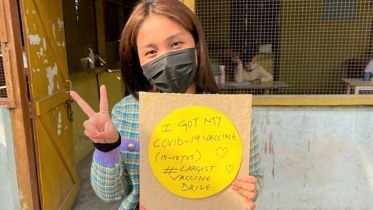 I GOT MY
COVID-19 VACCINE
(15-18YRS)
#LARGEST
VACCINE
DRIVE